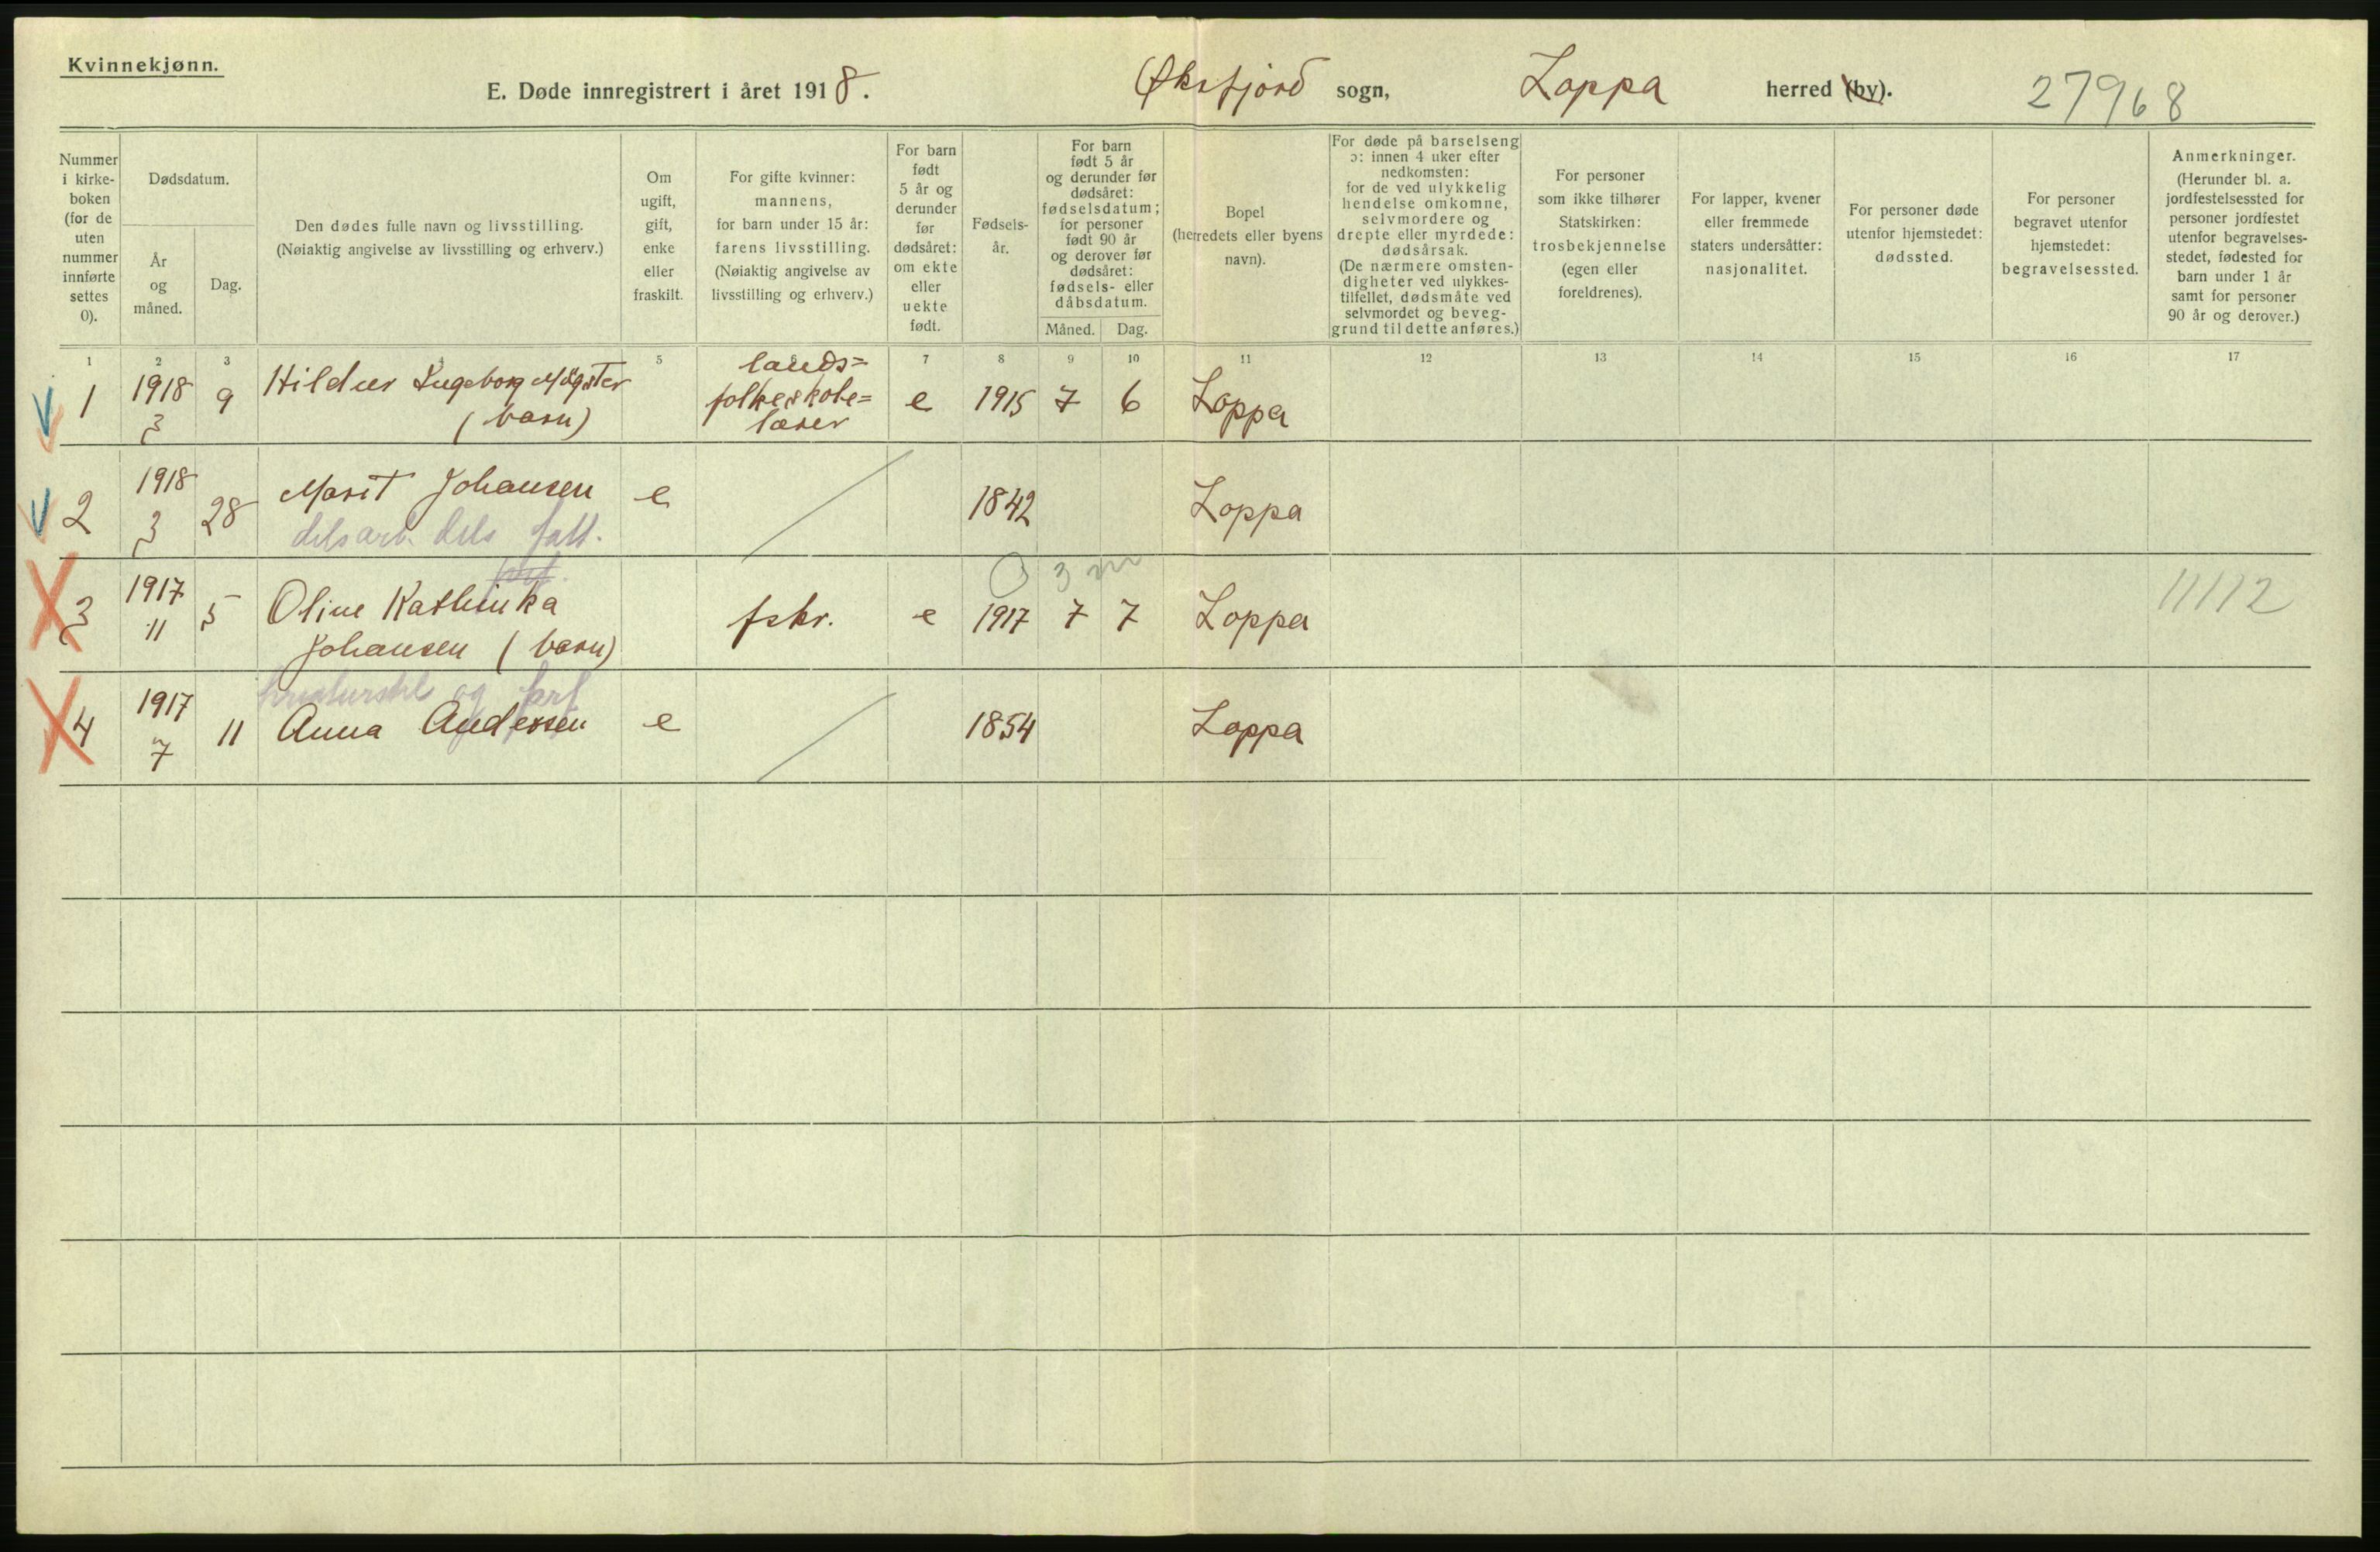 Kvinnekjønn.
E. Døde innregistrert i året 1918. Øksfjord sogn, Loppa herred (by). 27968
Nummer i kirke- boken (for de uten nummer innførte settes 0).
Dødsdatum.
År og måned.
Dag.
Den dødes fulle navn og livsstilling.
(Nøiaktig angivelse av livsstilling og erhverv.)
Om ugift, gift, enke eller fraskilt.
For gifte kvinner: mannens, for barn under 15 år: farens livsstilling. (Nøiaktig angivelse av livsstilling og erhverv.)
For barn født 5 år og derunder før dødsåret: om ekte eller uekte født.
Fødsels- år.
For barn født 5 år og derunder før dødsåret: fødselsdatum; for personer født 90 år og derover før dødsåret: fødsels- eller dåbsdatum.
Måned. Dag.
Bopel (herredets eller byens navn).
For døde på barselseng ɔ: innen 4 uker efter nedkomsten: for de ved ulykkelig hendelse omkomne, selvmordere og drepte eller myrdede: dødsårsak. (De nærmere omsten- digheter ved ulykkes- tilfellet, dødsmåte ved selvmordet og beveg- grund til dette anføres.)
For personer som ikke tilhører Statskirken: trosbekjennelse (egen eller foreldrenes).
For lapper, kvener eller fremmede staters undersåtter: nasjonalitet.
For personer døde utenfor hjemstedet: dødssted.
For personer begravet utenfor hjemstedet: begravelsessted.
Anmerkninger. (Herunder bl. a. jordfestelsessted for personer jordfestet utenfor begravelses- stedet, fødested for barn under 1 år samt for personer 90 år og derover.)
1 2 3 4 5 7 8 9 10 11 12 13 14 15 16 17
1 1918 3 9 Hildur Ingeborg Møgster (barn) lands= folkeskole= lærer e 1915 7 6 Loppa
2 1918 3 28 Marit Johansen e 1842 Loppa
dels arb. dels fatt.
0 3 m
3 1917 11 5 Oline Kathinka Johansen (barn) fskr. e 1917 7 7 Loppa 11112
og forf
4 1917 7 11 Anna Andersen e 1854 Loppa